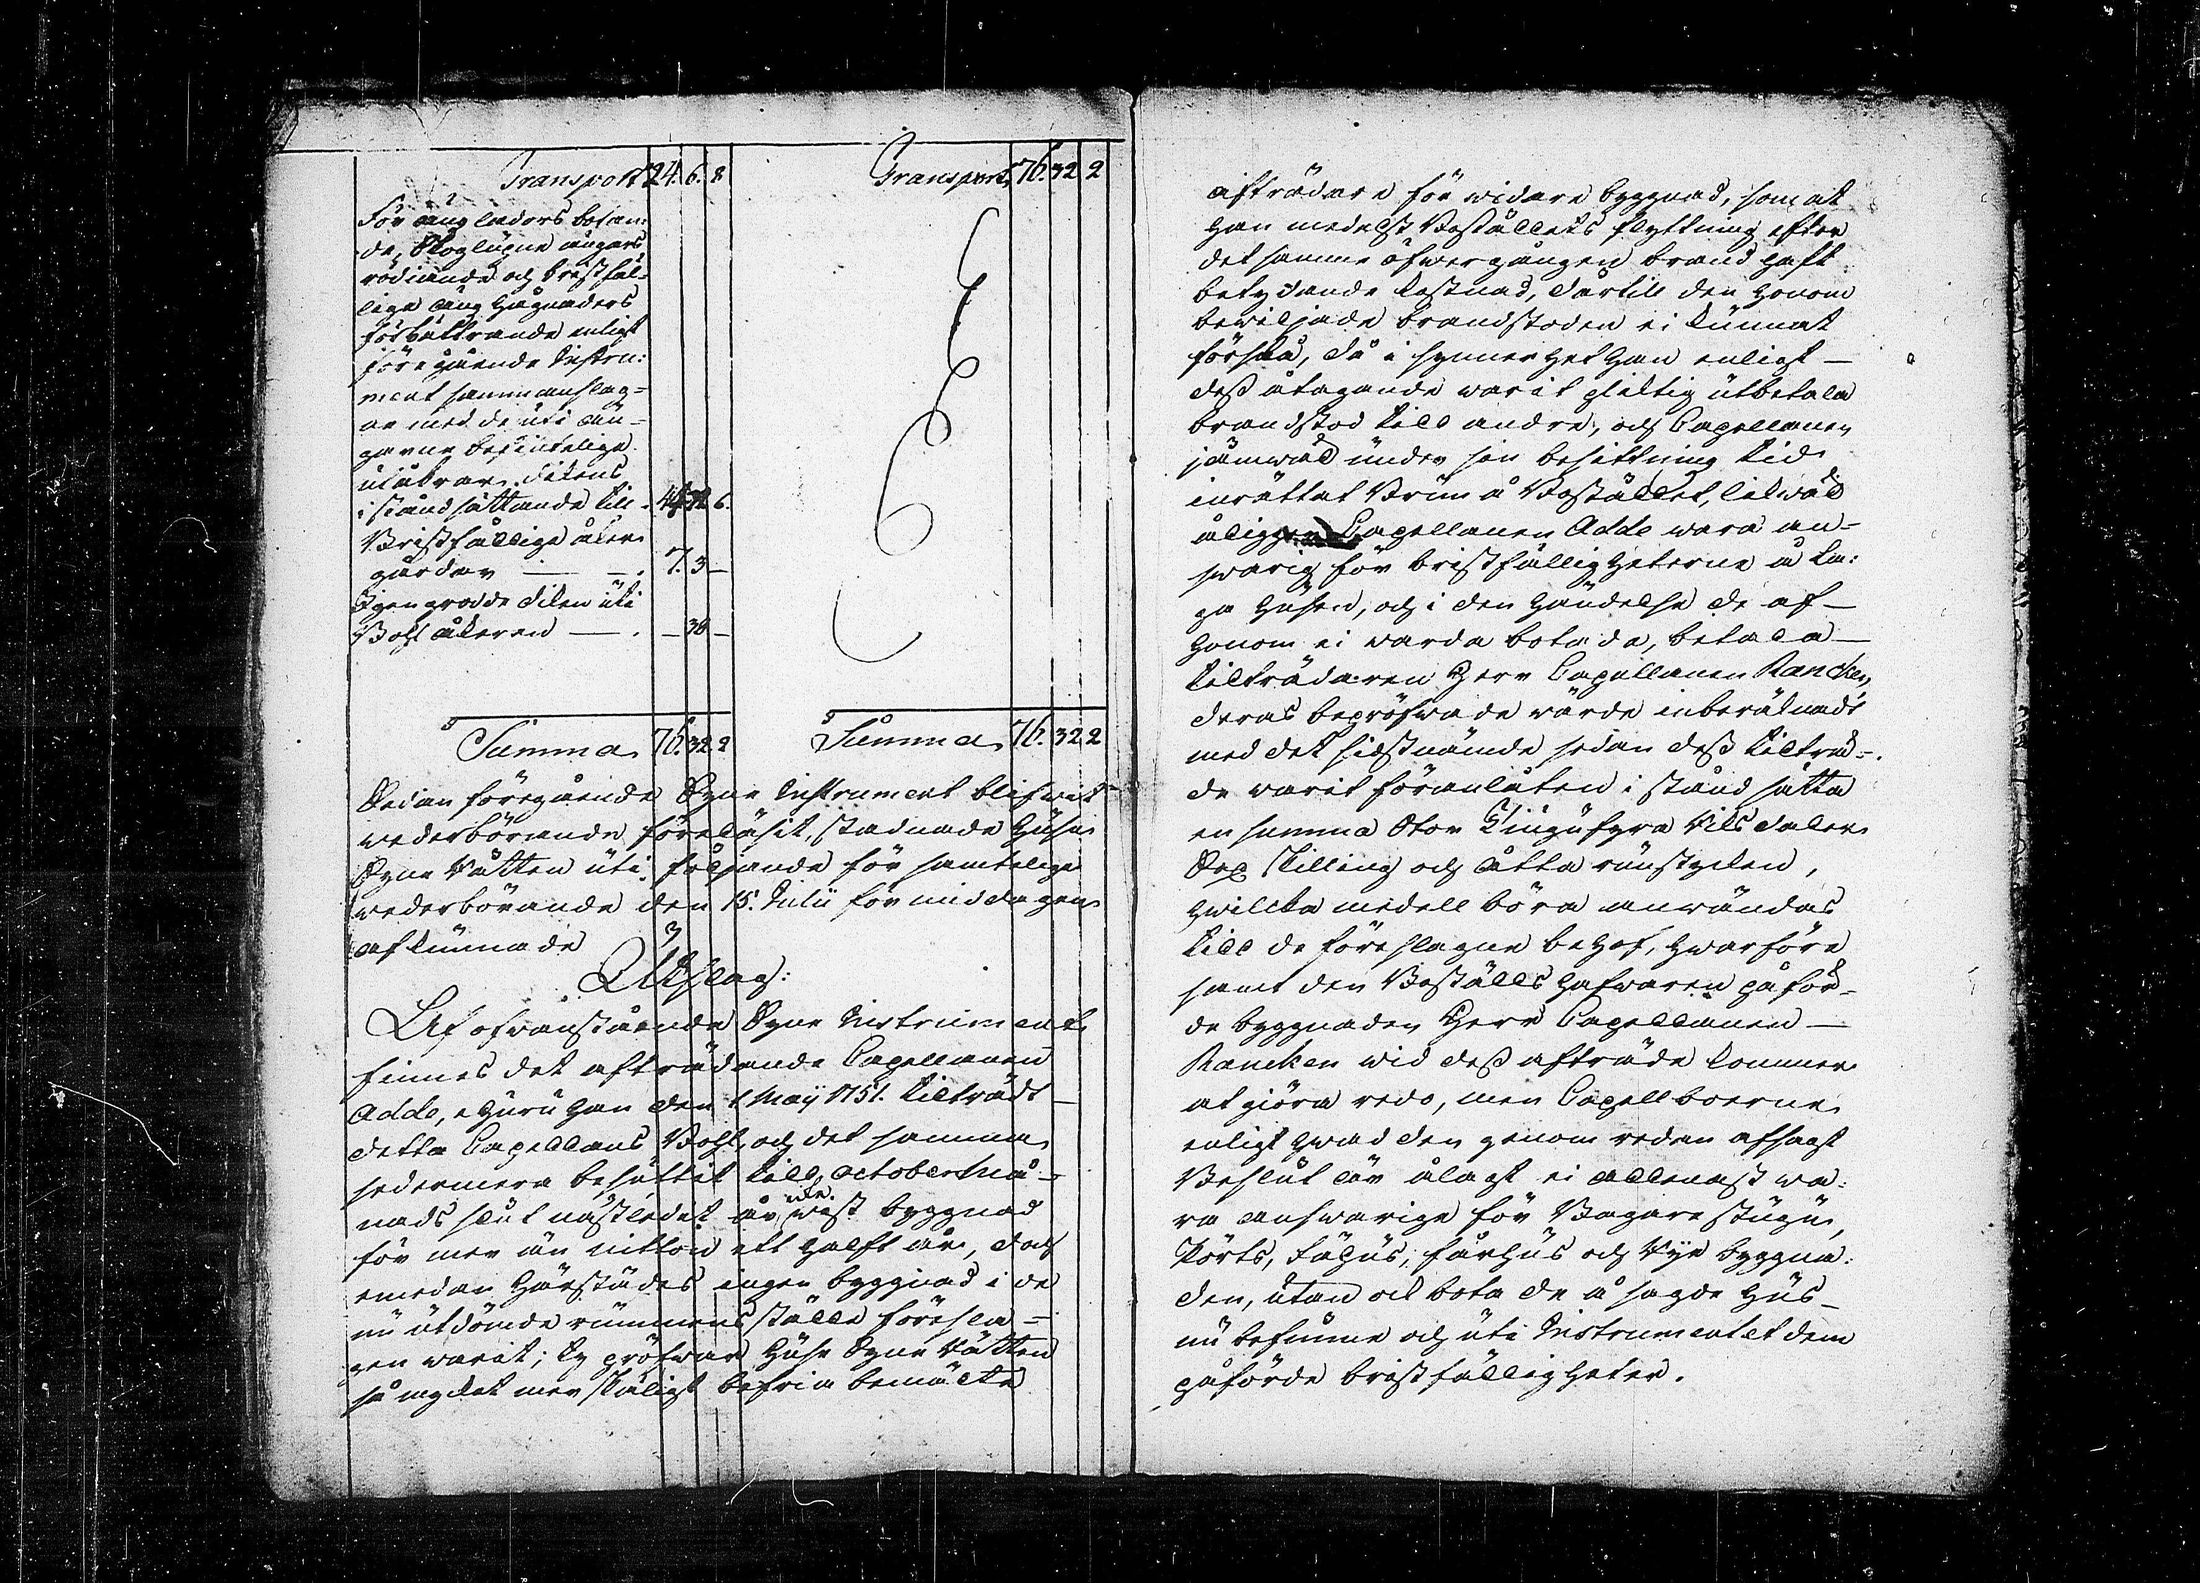 Transport 24. 6. 8
För ang ladors botan:
de, Skoglupne ängars
rödiande och bristfäl-
lige äng hägnaders
förbättrande enligt
föregående Instru:
ment sammanslag-
ne med de uti än-
garne befintelige
utåkrar. dikens
i stånd sättande till 6.
Bristfällige åker
gårdar — —. 7. 3 —
Igengrodde diken uti
Bohl åkeren —. — 38 —
Summa 76. 32 2
Transport 76. 32 2
Summa 76. 32 2
Sedan föregående Syne Instrument blifwit
wederbörande föreläsit, stadnade Huse
Syne Rätten uti följande för samtelige
wederbörande den 15. Julii förmiddagen
afkunnade
Utslag:
Af ofwanstående Syne Instrument
finnes det afträdande Capellanen
Adde, ehuru han den 1 Maij 1751. tilträdt
detta Capellans Bohl, och det samma
sedermera besuttit till October må-
nads slut nästledit år icke wist byggnad
för mer än nitton ett halft år, doch
emedan härstädes ingen byggnad i de
nu utdömde rummens ställe föresla-
gen warit; Ty pröfwar Huse Syne Rätten
så mycket mer skäligt befria bemälte
afträdare för widare byggnad, som at
han medelst Boställets flyttning efter
det samma öfwergången brand haft
betydande kostnad, dartill den honom
bewiljade brandstoden ei kunnat
förslå, då i synnerhet han enligt —
dess åtagande warit pliktig utbetala
brandstod till andre, och Capellanen
jämwäl under sin besittning tid
inrättat Brun å Bostället, likwäl
åligger Capellanen Adde wara an-
swarig för bristfälligheterne å La:
ga husen, och i den händelse de af —
honom ei warda botade, betala —
tillträdaren Herr Capellanen Rancken
deras bepröfwade wärde inberäknadt
med det sidstnämde sedan dess tillträ-
de warit föranlåten i stånd sätta
en summa stor Tiugufyra Riksdaler
Sex skilling och åtta runstycken,
hwilcka medell böra anwändas
till de föreslagne behof, hwarföre
samt den Boställs hafwaren påför-
de byggnaden Herr Capellanen —
Rancken wid dess afträde kommer
at giöra redo, men Capellboerne
enligt hwad den genom redan afsagt
Beslut lär ålagt ei allenast wa:
ra answarige för Bagare stugu,
Pörts, fähus, fårhus och Rije byggna:
den, utan ock bota de å sagde hus —
nu befunne och uti Instrumentet dem
påförde bristfälligheter.